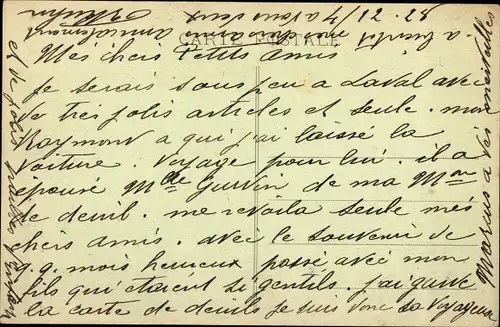 CARTE POSTALE
4/12.28
Mes chers Petits amis
je serais sous peu a Laval avec
de tres jolis articles et seule. mon
Raymond a qui j'ai laissé la
voiture. voyage pour lui. il a
épousé Mlle Guerin de ma Mon
de deuil. me revoila seule mes
chers amis. avec le souvenir de
q.q. mois heureux passé avec mon
fils qui etaient si gentils. j'ai
la carte de deuils je suis donc sa voyageuse
et de jolis
a bientot mes chers amis a vous deux
amicalement